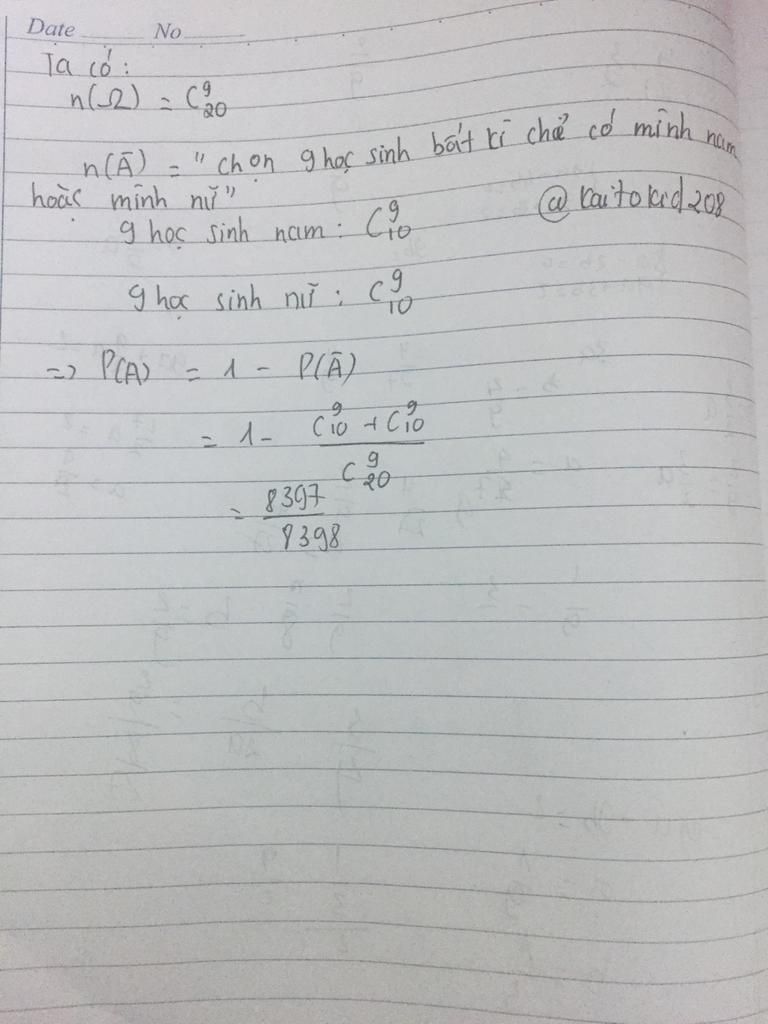 Date No
Ta có:
n(Ω) = C⁹₂₀
n(Ā) = "chọn 9 học sinh bất kì chỉ có mình nam
hoặc mình nữ"
@kaitokid208
9 học sinh nam: C⁹₁₀
9 học sinh nữ: C⁹₁₀
=> P(A) = 1 - P(Ā)
= 1 - (C⁹₁₀ + C⁹₁₀)/C⁹₂₀
= 8397/8398